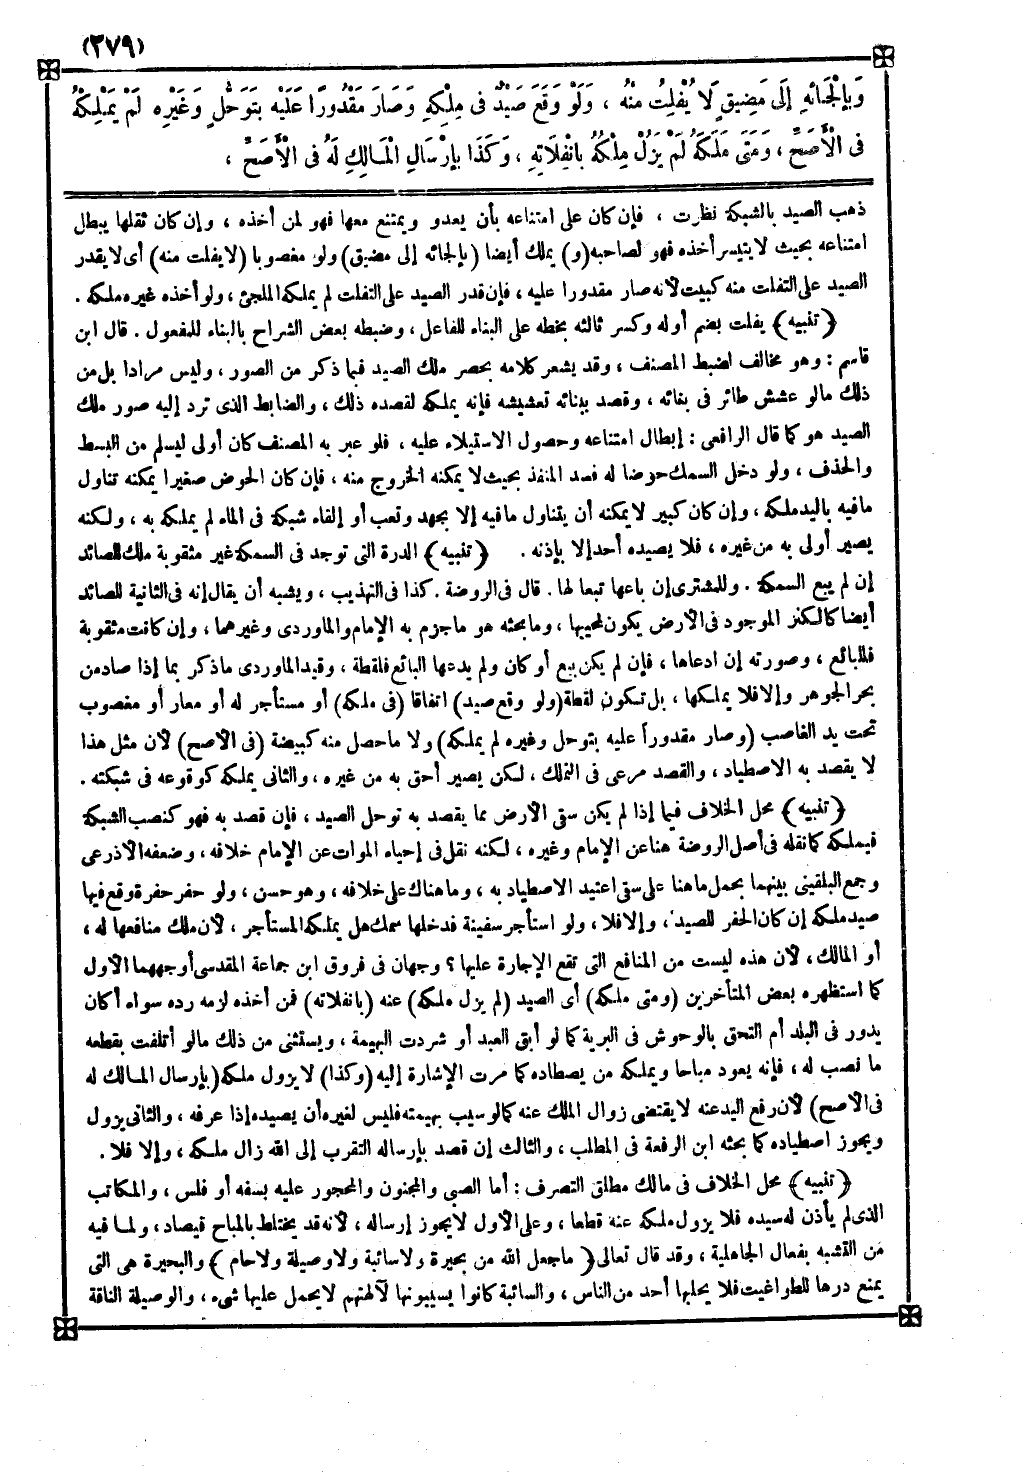 (٢٧٩)
وَبِإِلْجَائِهِ إِلَى مَضِيقٍ لَا يُفْلِتُ مِنْهُ ، وَلَوْ وَقَعَ صَيْدٌ فِى مِلْكِهِ وَصَارَ مَقْدُورًا عَلَيْهِ بِتَوَحُّلٍ وَغَيْرِهِ لَمْ يَمْلِكْهُ
فِى الْأَصَحِّ ، وَمَتَى مَلَكَهُ لَمْ يَزُلْ مِلْكُهُ بِانْفِلَاتِهِ ، وَكَذَا بِإِرْسَالِ الْمَالِكِ لَهُ فِى الْأَصَحِّ ،
ذهب الصيد بالشبكة نظرت ، فإن كان على امتناعه بأن يعدو ويمتنع معها فهو لمن أخذه ، وإن كان ثقلها يبطل
امتناعه بحيث لا يتيسر أخذه فهو لصاحبه (و) يملك أيضا (بإلجائه إلى مضيق) ولو مغصوبا (لا يفلت منه) أى لا يقدر
الصيد على التفلت منه كبيت لأنه صار مقدورا عليه ، فإن قدر الصيد على التفلت لم يملكه الملجئ ، ولو أخذه غيره ملكه .
﴿ تنبيه ﴾ يفلت بضم أوله وكسر ثالثه بخطه على البناء للفاعل ، وضبطه بعض الشراح بالبناء للمفعول . قال ابن
قاسم : وهو مخالف لضبط المصنف ، وقد يشعر كلامه بحصر ملك الصيد فيما ذكر من الصور ، وليس مرادا بل من
ذلك مالو عشش طائر فى بنائه ، وقصد ببنائه تعشيشه فإنه يملكه لقصده ذلك ، والضابط الذى ترد إليه صور ملك
الصيد هو كما قال الرافعى : إبطال امتناعه وحصول الاستيلاء عليه ، فلو عبر به المصنف كان أولى ليسلم من البسط
والحذف ، ولو دخل السمك حوضا له فسد المنفذ بحيث لا يمكنه الخروج منه ، فإن كان الحوض صغيرا يمكنه تناول
مافيه باليد ملكه ، وإن كان كبير لا يمكنه أن يتناول مافيه إلا بجهد وتعب أو إلقاء شبكة فى الماء لم يملكه به ، ولكنه
يصير أولى به من غيره ، فلا يصيده أحد إلا بإذنه . ﴿ تنبيه ﴾ الدرة التى توجد فى السمكة غير مثقوبة ملك للصائد
إن لم يبع السمكة . وللمشترى إن باعها تبعا لها . قال فى الروضة . كذا فى التهذيب ، ويشبه أن يقال إنه فى الثانية للصائد
أيضا كالكنز الموجود فى الأرض يكون لمحييها ، وما بحثه هو ماجزم به الإمام والماوردى وغيرهما ، وإن كانت مثقوبة
فللبائع ، وصورته إن ادعاها ، فإن لم يكن بيع أو كان ولم يدعها البائع فلقطة ، وقيد الماوردى ماذكر بما إذا صاد من
بحر الجوهر وإلا فلا يملكها ، بل تكون لقطة (ولو وقع صيد) اتفاقا (فى ملكه) أو مستأجر له أو معار أو مغصوب
تحت يد الغاصب (وصار مقدوراً عليه بتوحل وغيره لم يملكه) ولا ماحصل منه كبيضة (فى الأصح) لأن مثل هذا
لا يقصد به الاصطياد ، والقصد مرعى فى التملك ، لكن يصير أحق به من غيره ، والثانى يملكه كوقوعه فى شبكته .
﴿ تنبيه ﴾ محل الخلاف فيما إذا لم يكن سقى الأرض مما يقصد به توحل الصيد ، فإن قصد به فهو كنصب الشبكة
فيملكه كما نقله فى أصل الروضة هنا عن الإمام وغيره ، لكنه نقل فى إحياء الموات عن الإمام خلافه ، وضعفه الأذرعى
وجمع البلقينى بينهما بحمل ماهنا على سقى اعتيد الاصطياد به ، وما هناك على خلافه ، وهو حسن ، ولو حفر حفرة وقع فيها
صيد ملكه إن كان الحفر للصيد ، وإلا فلا ، ولو استأجر سفينة فدخلها سمك هل يملكه المستأجر ، لأن ملك منافعها له ،
أو المالك ، لأن هذه ليست من المنافع التى تقع الإجارة عليها ؟ وجهان فى فروق ابن جماعة المقدسى أوجههما الأول
كما استظهره بعض المتأخرين (ومتى ملكه) أى الصيد (لم يزل ملكه) عنه (بانفلاته) فمن أخذه لزمه رده سواء أكان
يدور فى البلد أم التحق بالوحوش فى البرية كما لو أبق العبد أو شردت البهيمة ، ويستثنى من ذلك مالو أتلفت بقطعه
ما نصب له ، فإنه يعود مباحا ويملكه من يصطاده كما مرت الإشارة إليه (وكذا) لا يزول ملكه (بإرسال المالك له
فى الأصح) لأن رفع اليد عنه لا يقتضى زوال الملك عنه كمالو سيب بهيمته فليس لغيره أن يصيده إذا عرفه ، والثانى يزول
ويجوز اصطياده كما بحثه ابن الرفعة فى المطلب ، والثالث إن قصد بإرساله التقرب إلى الله زال ملكه ، وإلا فلا .
﴿ تنبيه ﴾ محل الخلاف فى مالك مطلق التصرف : أما الصبى والمجنون والمحجور عليه بسفه أو فلس ، والمكاتب
الذى لم يأذن له سيده فلا يزول ملكه عنه قطعا ، وعلى الأول لا يجوز إرساله ، لأنه قد يختلط بالمباح فيصاد ، ولما فيه
من التشبه بفعال الجاهلية ، وقد قال تعالى ﴿ ماجعل الله من بحيرة ولا سائبة ولا وصيلة ولا حام ﴾ والبحيرة هى التى
يمنع درها للطواغيت فلا يحلبها أحد من الناس ، والسائبة كانوا يسيبونها لآلهتهم لا يحمل عليها شىء ، والوصيلة الناقة